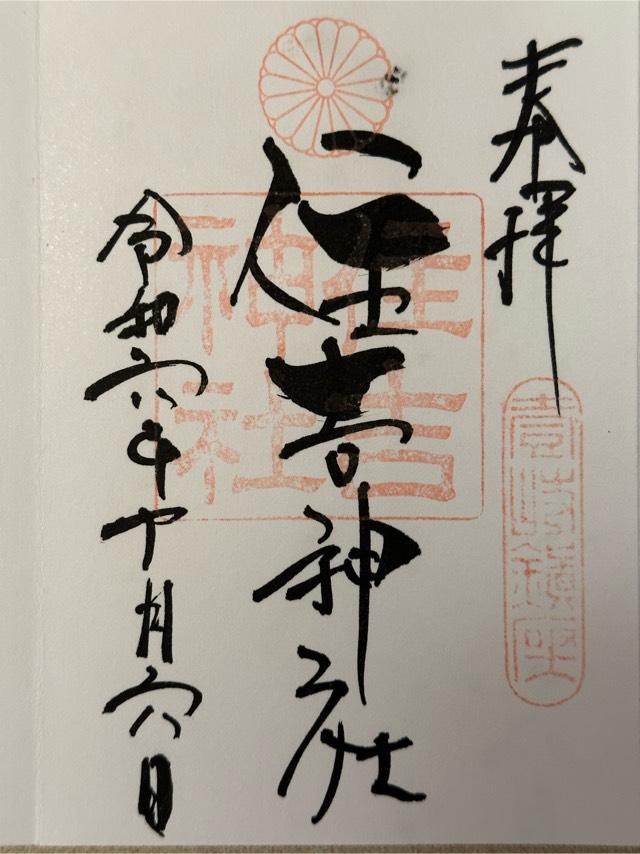 奉拝
住吉神社
令和六年十月六日
住吉
神社